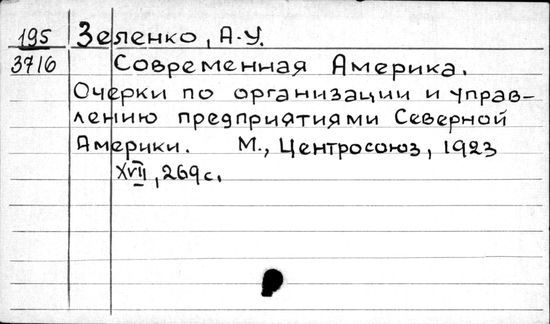 195 Зеленко, А.У.
3716 Современная Америка.
Очерки по организации и управ-
лению предприятиями Северной
Америки. М., Центросоюз, 1923
XVII, 269с.